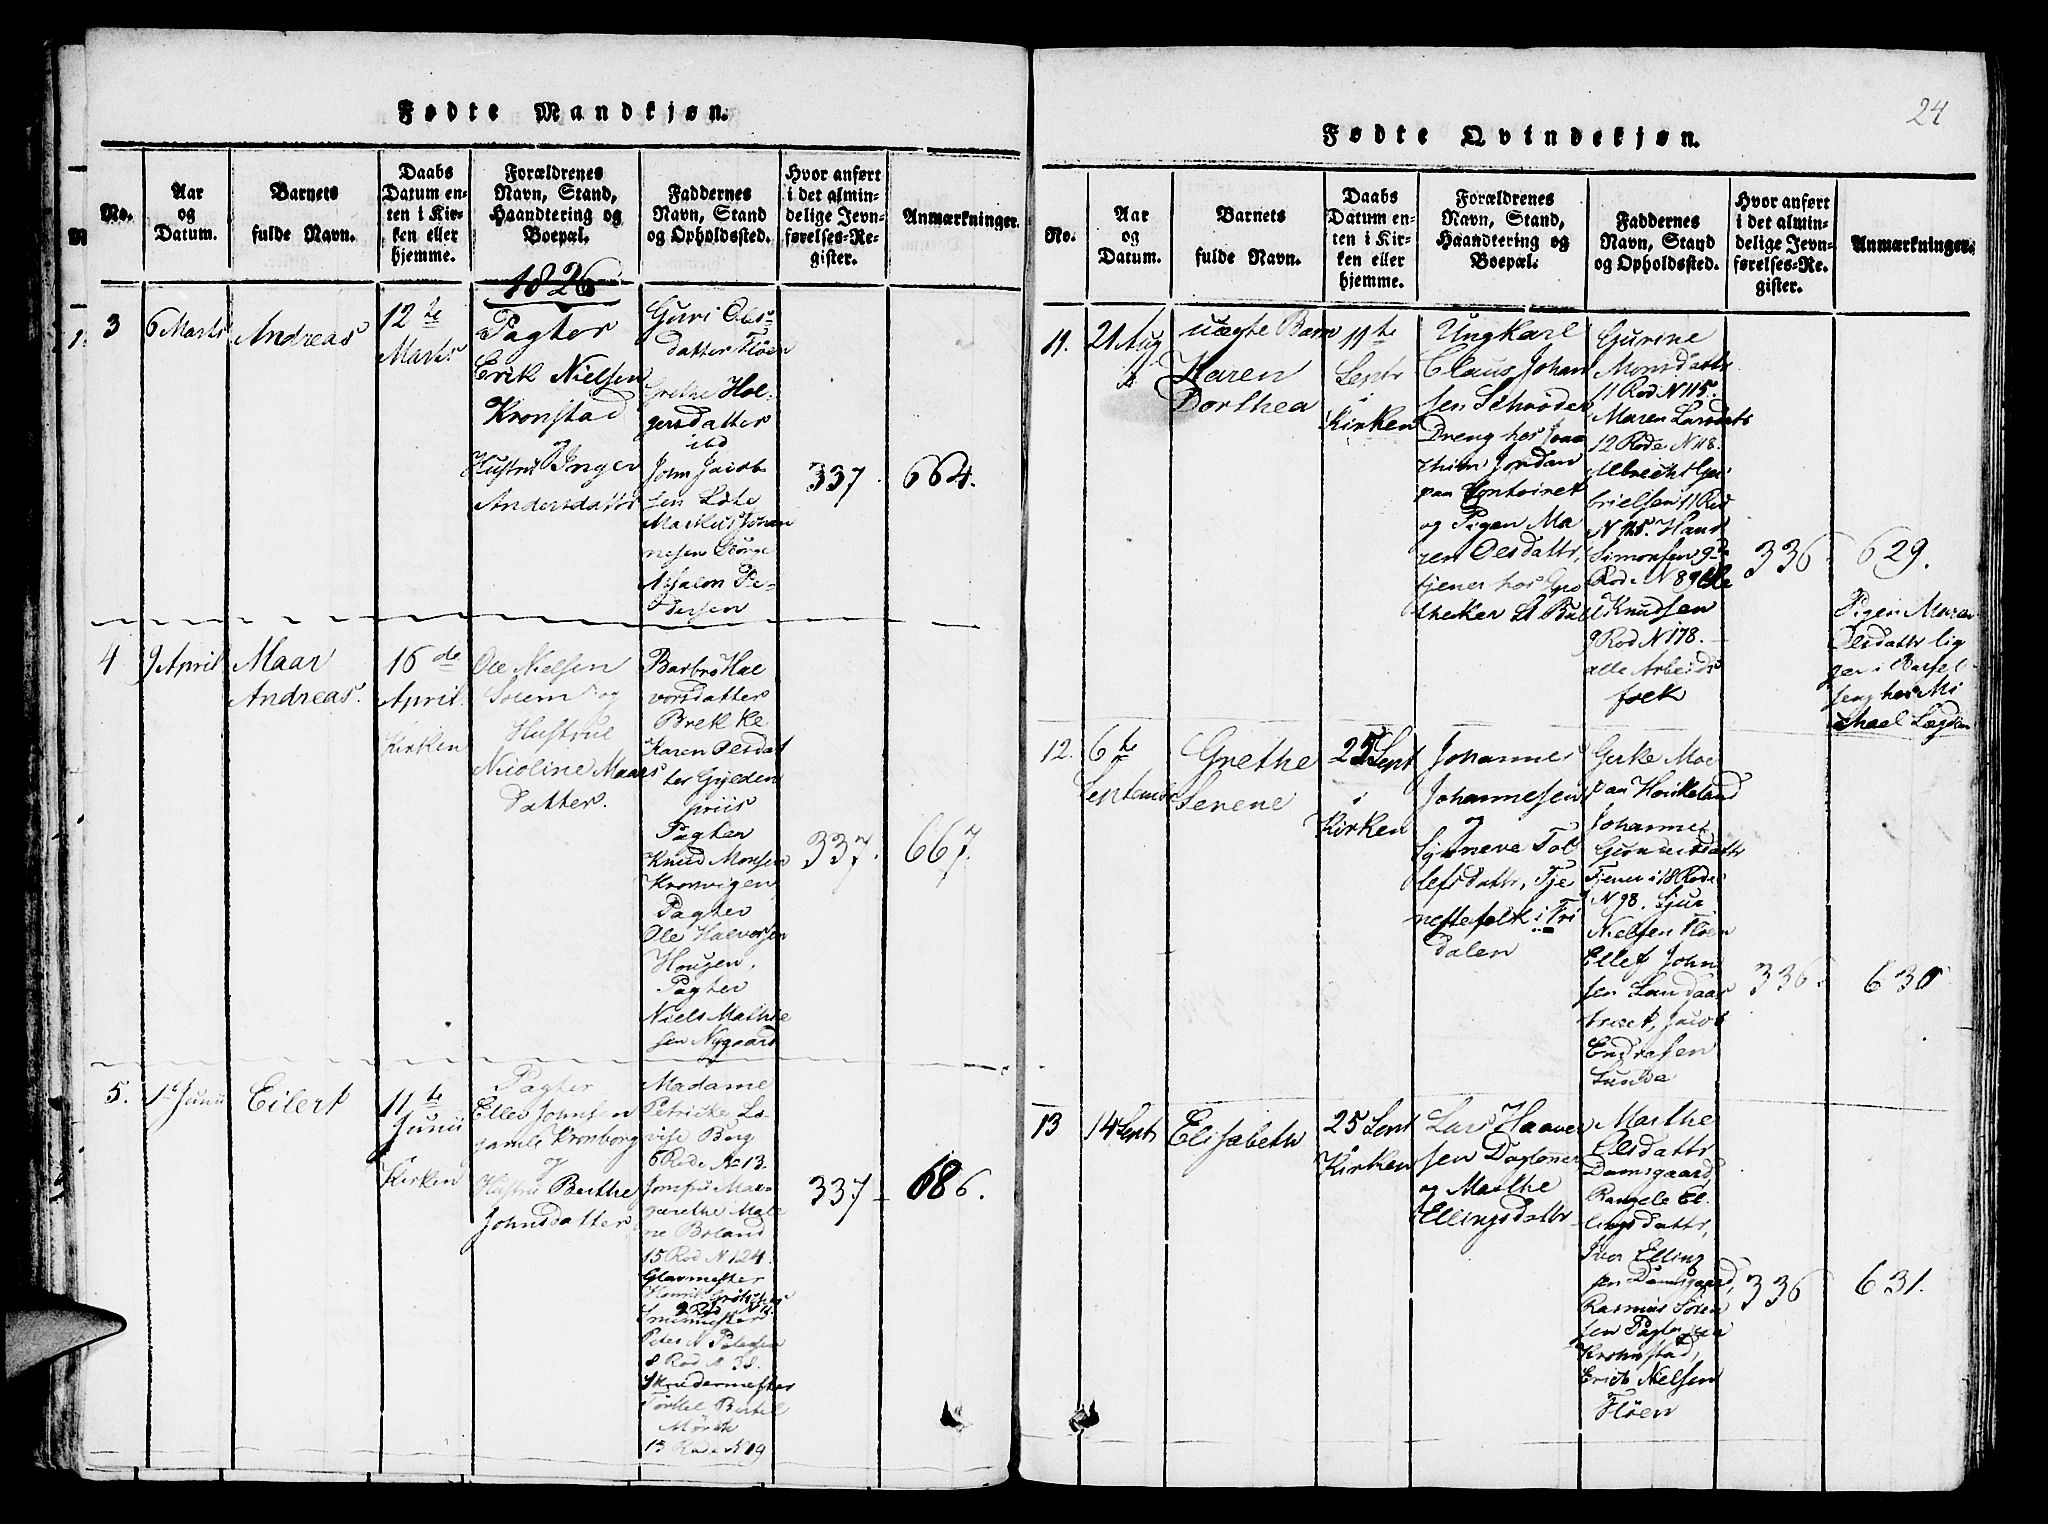 Fødte Mandkjøn.
No.
Aar
og
Datum.
Barnets
fulde Navn.
Daabs
Datum en-
ten i Kir-
ken eller
hjemme.
Forældrenes
Navn, Stand,
Haandtering og
Boepæl.
Faddernes
Navn, Stand
og Opholdssted.
Hvor anført
i det almin-
delige Jevn-
førelses-Re-
gister.
Anmærkninger.
1826
3
6 Marts
Andreas
12te
Marts
Pagter
Erik Nielsen
Kronstad
og
Hustru Inger
Andersdattr
Guri Ols-
datter Fløen
Grethe Hol-
gersdatter
ibd
John Jacob-
sen
Markus Johan
nesen
Absalon Pe-
dersen
337
664.
4
9 April
Maar
Andreas.
16de
April
Kirken
Ole Nielsen
Soiem og
Hustrue
Nicoline Maars
datter.
Barbro Hal
vorsdatter
Brekke
Karen Olsdat
ter Gylden
priis
Pagter
Knud Monsen
Kronvigen
Pagter
Ole Halvorsen
Hougen,
Pagter
Niels Mathie
sen Nygaard
337.
667.
5.
1ste Junii
Eilert
11te
Junii
Kirken
Pagter
Ellev Johnsen
gamle Kronborg
og
Hustru Berthe
Johnsdatter
Madame
Petricke Lo-
vise Berg
6 Rode No 13.
Jomfru Mar-
garethe Male
ne Boland
15 Rod N 124.
Glarmester
Henrik
2 Rod N
Smedmester
Peter N Petersen
8 Rod N 38.
Skrædermester
Torkel Bertel
Mörch
15 Rode N 19
337
686.
24
Fødte Qvindekjøn.
No.
Aar
og
Datum.
Barnets
fulde Navn.
Daabs
Datum en-
ten i Kir-
ken eller
hjemme.
Forældrenes
Navn, Stand,
Haandtering og
Boepæl.
Faddernes
Navn, Stand
og Opholdssted.
Hvor anført
i det almin-
delige Jevn-
førelses-Re-
gister.
Anmærkninger.
11.
21 Aug
uægte Barn
Karen
Dorthea
11te
Septr
i
Kirken
Ungkarl
Claus Johan
sen Schrøder
Dreng hos Joac
him Jordan
paa Contoiret
og Pigen Ma
ren Olsdattr,
tjener hos Apo
theker
Gurine
Monsdattr
11 Rod N 115.
Maren Larsdattr
12 Rode N 118.
Albrecht Ga
brielsen 11 Rod
N 115. Hans
Simonsen 9de
Rode N 89 Ole
Knudsen
9 Rod N 178.
alle Arbeids
folk
336
629.
Pigen Maren
Olsdattr lig
ger i Barsel
seng hos Mi
chael
12.
6te
Septembr
Grethe
Serene
25 Sept
i
Kirken
Johannes
Johannesen
og
Synneve Tol
lefsdattr, Tje
nestefolk i Fri
dalen
Gerke Moe
paa Haukeland
Johanne
Gunnersdattr
Tjener i 18 Rode
N 98. Sjur
Nielsen Fløen
Ellef John
sen Landaas
træet, Jacob
Endresen
Lunde
336.
630
13
14 Septr
Elisabeth
25 Sept
i
Kirken
Lars Haaver
sen Dagløner
og Marthe
Ellingsdattr
Marthe
Olsdattr
Damsgaard,
Rangele El
lingsdattr,
Iver Elling
sen Damsgaard,
Rasmus Sören
sen Pagter paa
Kronstad,
Erich Nielsen
Fløen
336
631.